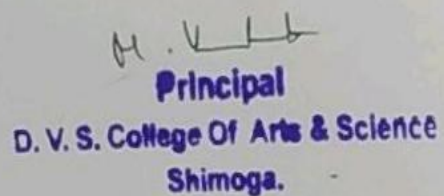 Principal
D. V. S. College Of Arts & Science
Shimoga.